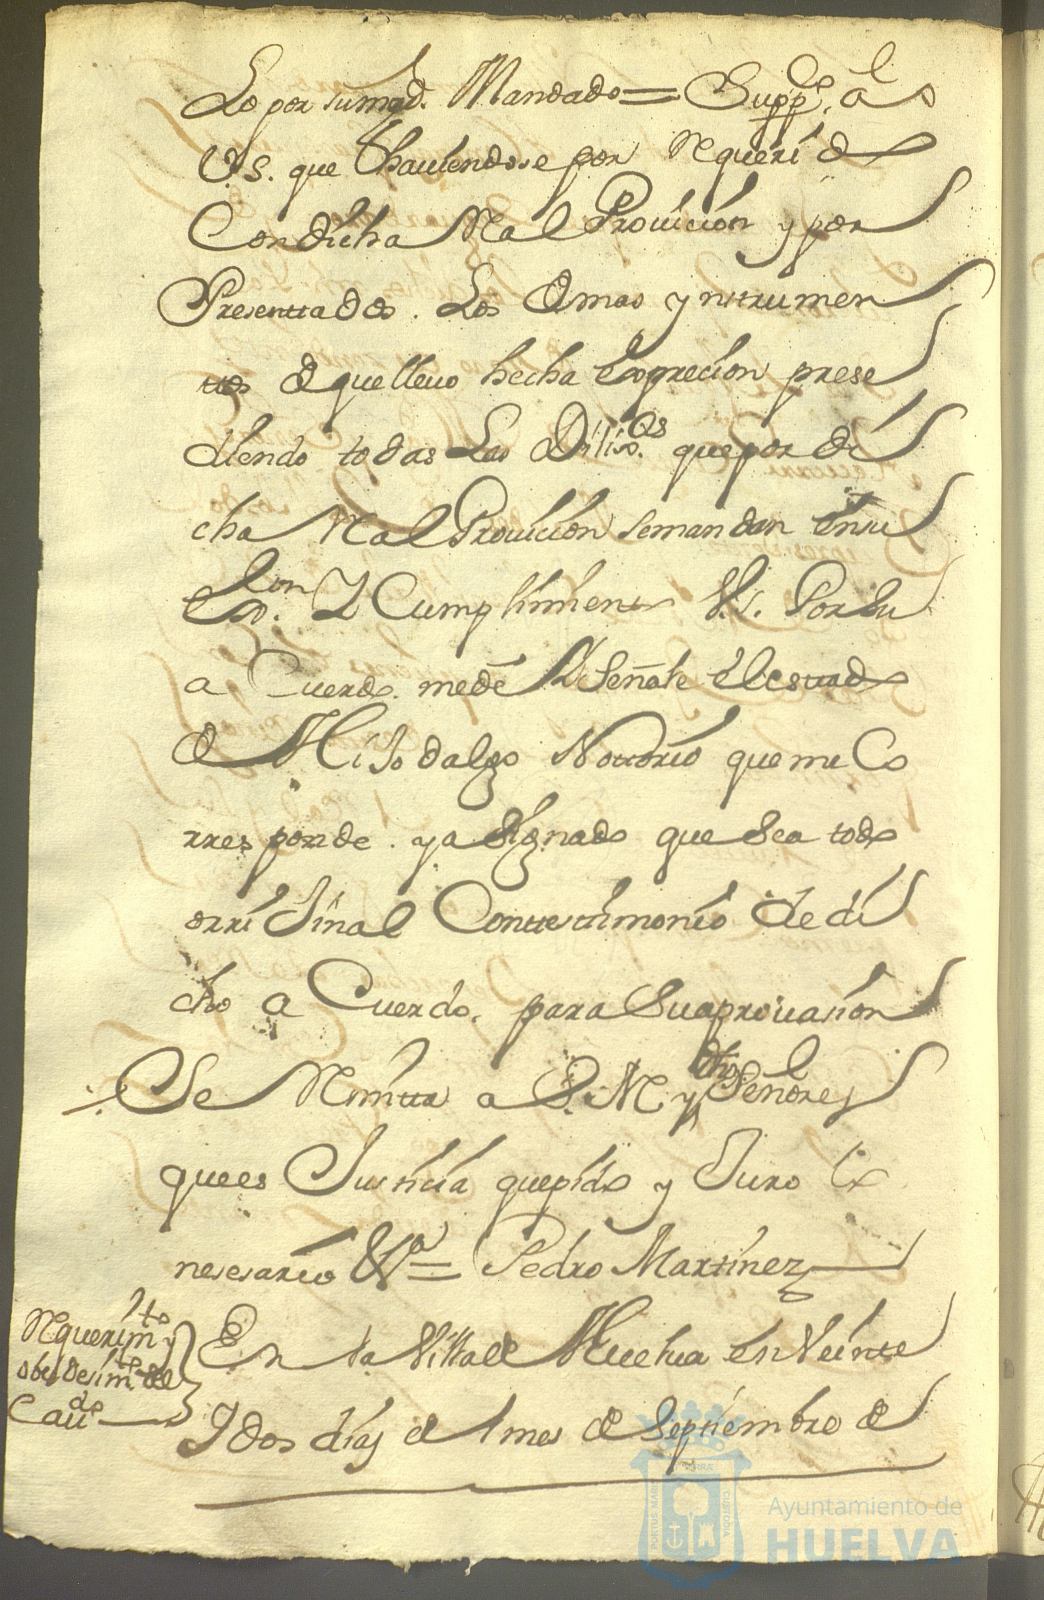 Lo por su magd. Mandado = Suppco. a
V.S. que haviendose por Rqueri do
Con dicha Rl Provicion y por
Presenttados. Los demas ynstrumen
ttos de que llevo hecha Expreción prese
diendo todas Las Dilixas. que por di
cha Rl Provicion se mandan en su
Exon. Y Cumplimiento V.S. Por su
a Cuerdo. me dé Y Señale el estado
de Hijo dalgo Nottorio que me Co
rres ponde. y a Signado que sea todo
orri Jinal Con ttestimonio de di
cho a Cuerdo. para su aprovasion
Se Rmitta a S. M. y dhos Señores
que es Justicia que pido y Juro Lo
nesesario &a = Pedro Martinez
Rquerimto. y
obedesimto. del
Cavdo.
En la Villa de Huelva en Veinte
Y dos dias del mes de Septiembre de
PORTUS MARIS
ET TERRÆ
CUSTODIA
Ayuntamiento de
HUELVA